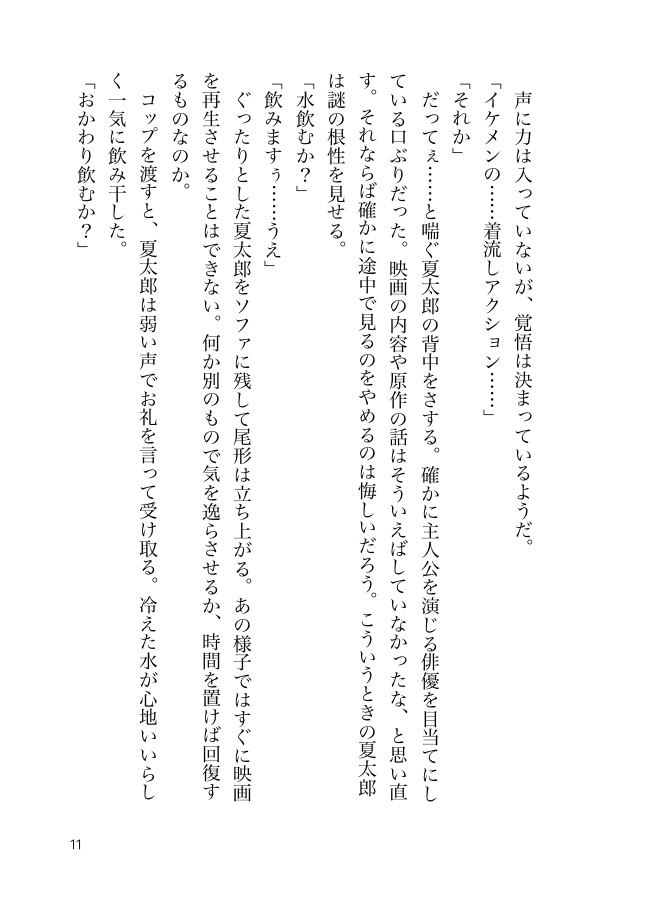 声に力は入っていないが、覚悟は決まっているようだ。
「イケメンの……着流しアクション……」
「それか」
　だってぇ……と喘ぐ夏太郎の背中をさする。確かに主人公を演じる俳優を目当てにし
ている口ぶりだった。映画の内容や原作の話はそういえばしていなかったな、と思い直
す。それならば確かに途中で見るのをやめるのは悔しいだろう。こういうときの夏太郎
は謎の根性を見せる。
「水飲むか？」
「飲みますぅ……うえ」
　ぐったりとした夏太郎をソファに残して尾形は立ち上がる。あの様子ではすぐに映画
を再生させることはできない。何か別のもので気を逸らさせるか、時間を置けば回復す
るものなのか。
　コップを渡すと、夏太郎は弱い声でお礼を言って受け取る。冷えた水が心地いいらし
く一気に飲み干した。
「おかわり飲むか？」
11